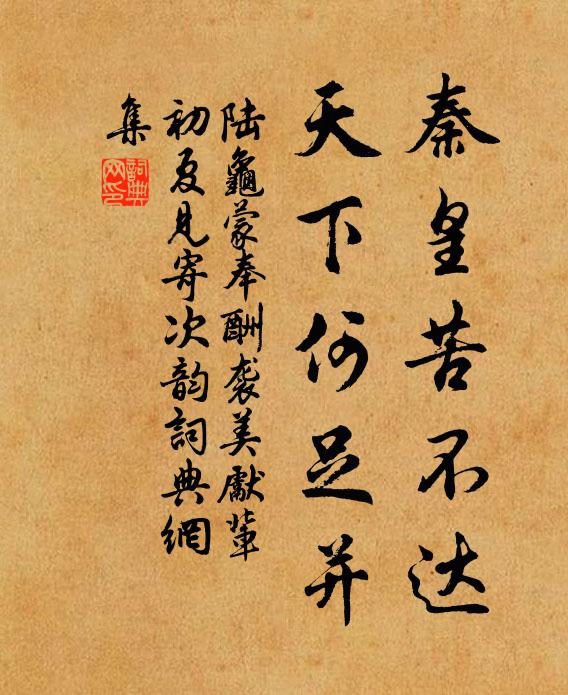 秦皇苦不达
天下何足并
陆龜蒙奉酬袭美獻輩
初夏見寄次韵詞典網
集
詞典
网印